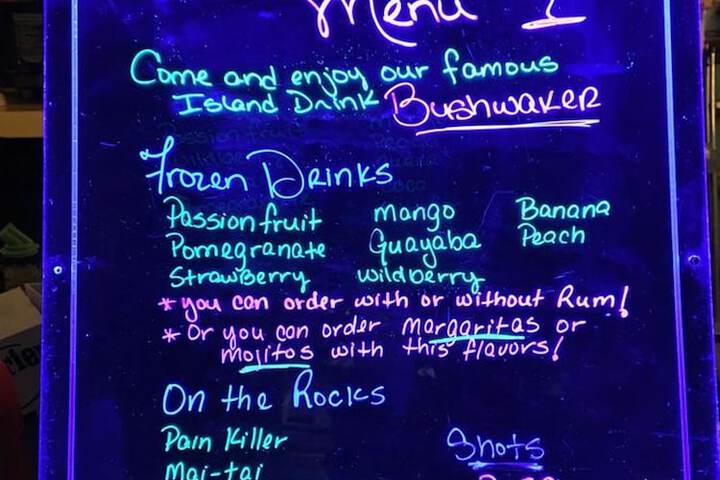 Menu 1
Come and enjoy our famous
Island Drink Bushwaker
Frozen Drinks
Passion fruit mango Banana
Pomegranate Guayaba Peach
Strawberry wildberry
* you can order with or without Rum!
* Or you can order margaritas or
mojitos with this flavors!
On the Rocks
Pain Killer Shots
Mai-tai